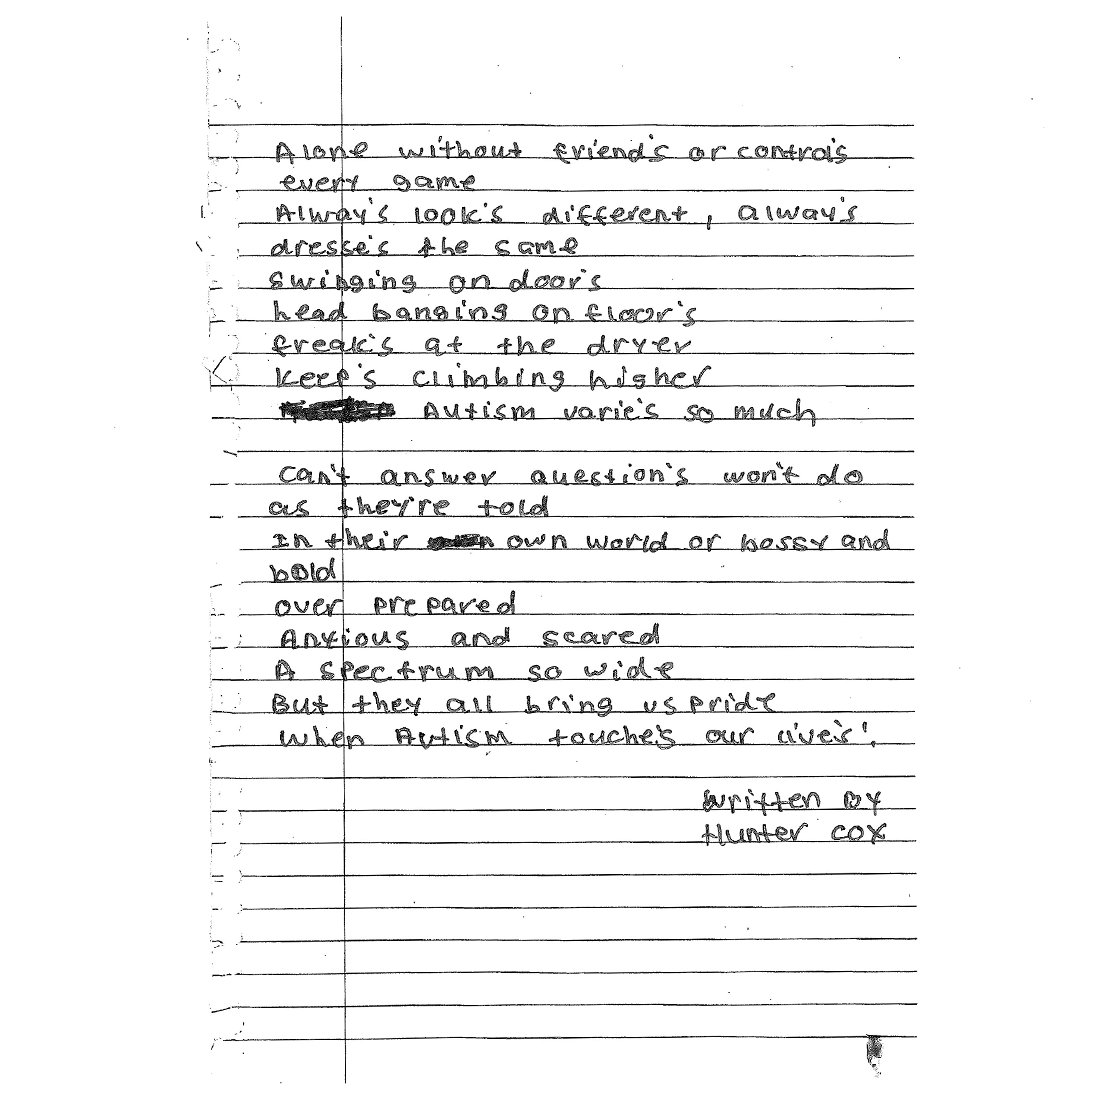 Alone without friend's or control's
every game
Alway's look's different, alway's
dresse's the same
swinging on door's
head banging on floor's
freak's at the dryer
Keep's climbing higher
Autism varie's so much
can't answer question's won't do
as they're told
In their own world or bossy and
bold
over prepared
Anxious and scared
A spectrum so wide
But they all bring us pride
when Autism touche's our live's'.
written By
Hunter Cox